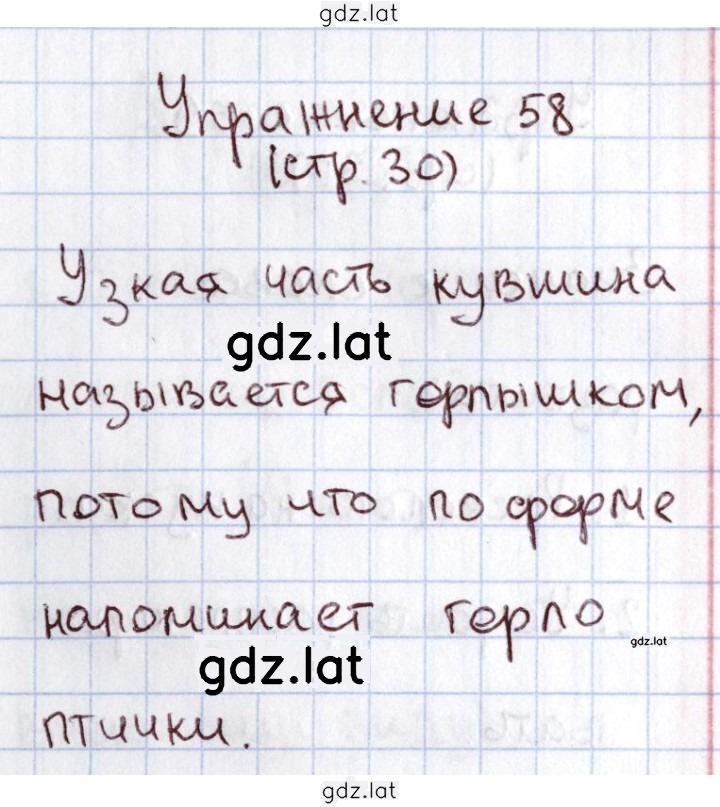 gdz.lat
Упражнение 58
(стр. 30)
Узкая часть кувшина
gdz.lat
называется горлышком,
потому что по форме
напоминает горло
gdz.lat
gdz.lat
птички.
gdz.lat